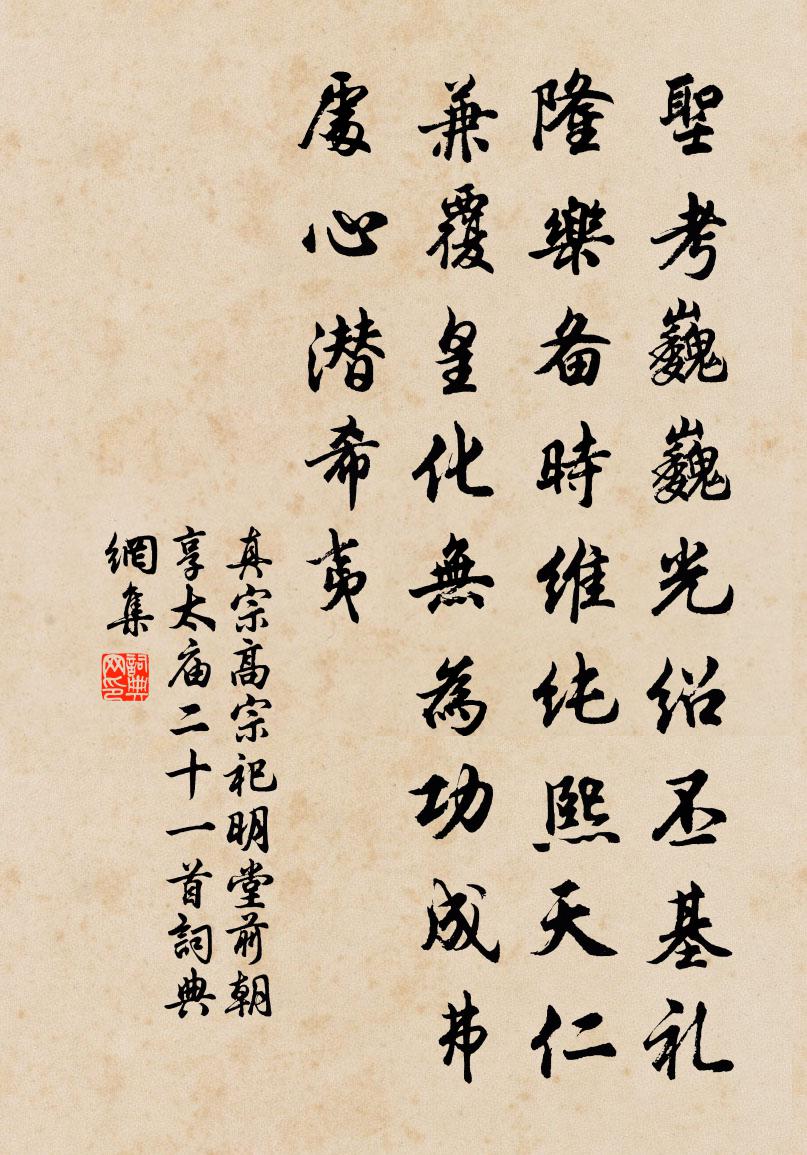 聖考巍巍光绍丕基礼
隆樂备時维纯熙天仁
兼覆皇化無為功成弗
處心潜希夷
真宗高宗祀明堂前朝
享太庙二十一首詞典
網集
詞典网印